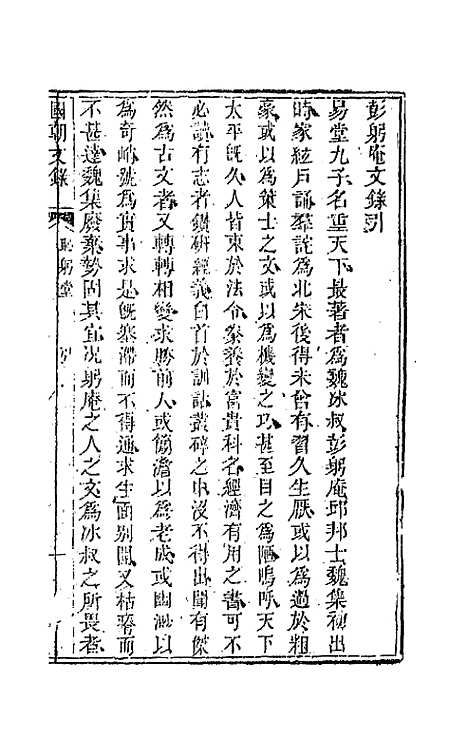 彭躬庵文錄引
易堂九子名重天下最著者爲魏冰叔彭躬庵邱邦士魏集初出
時家絃戶誦羣詫爲北宋後得未曾有習久生厭或以爲過於粗
豪或以爲策士之文或以爲機變之巧甚至目之爲陋嗚呼天下
太平旣久人皆束於法令豢養於富貴科名經濟有用之書可不
必讀有志者鑽硏經義白首於訓詁叢碎之中沒不得出閒有傑
然爲古文者又轉轉相變求勝前人或飾澹以爲老成或幽澀以
爲奇峭號爲實事求是旣塞滯而不得通求生面别開又枯瘠而
不甚達魏集廢棄勢固其宜况躬庵之人之文爲冰叔之所畏者
國朝文錄
恥躬堂
引